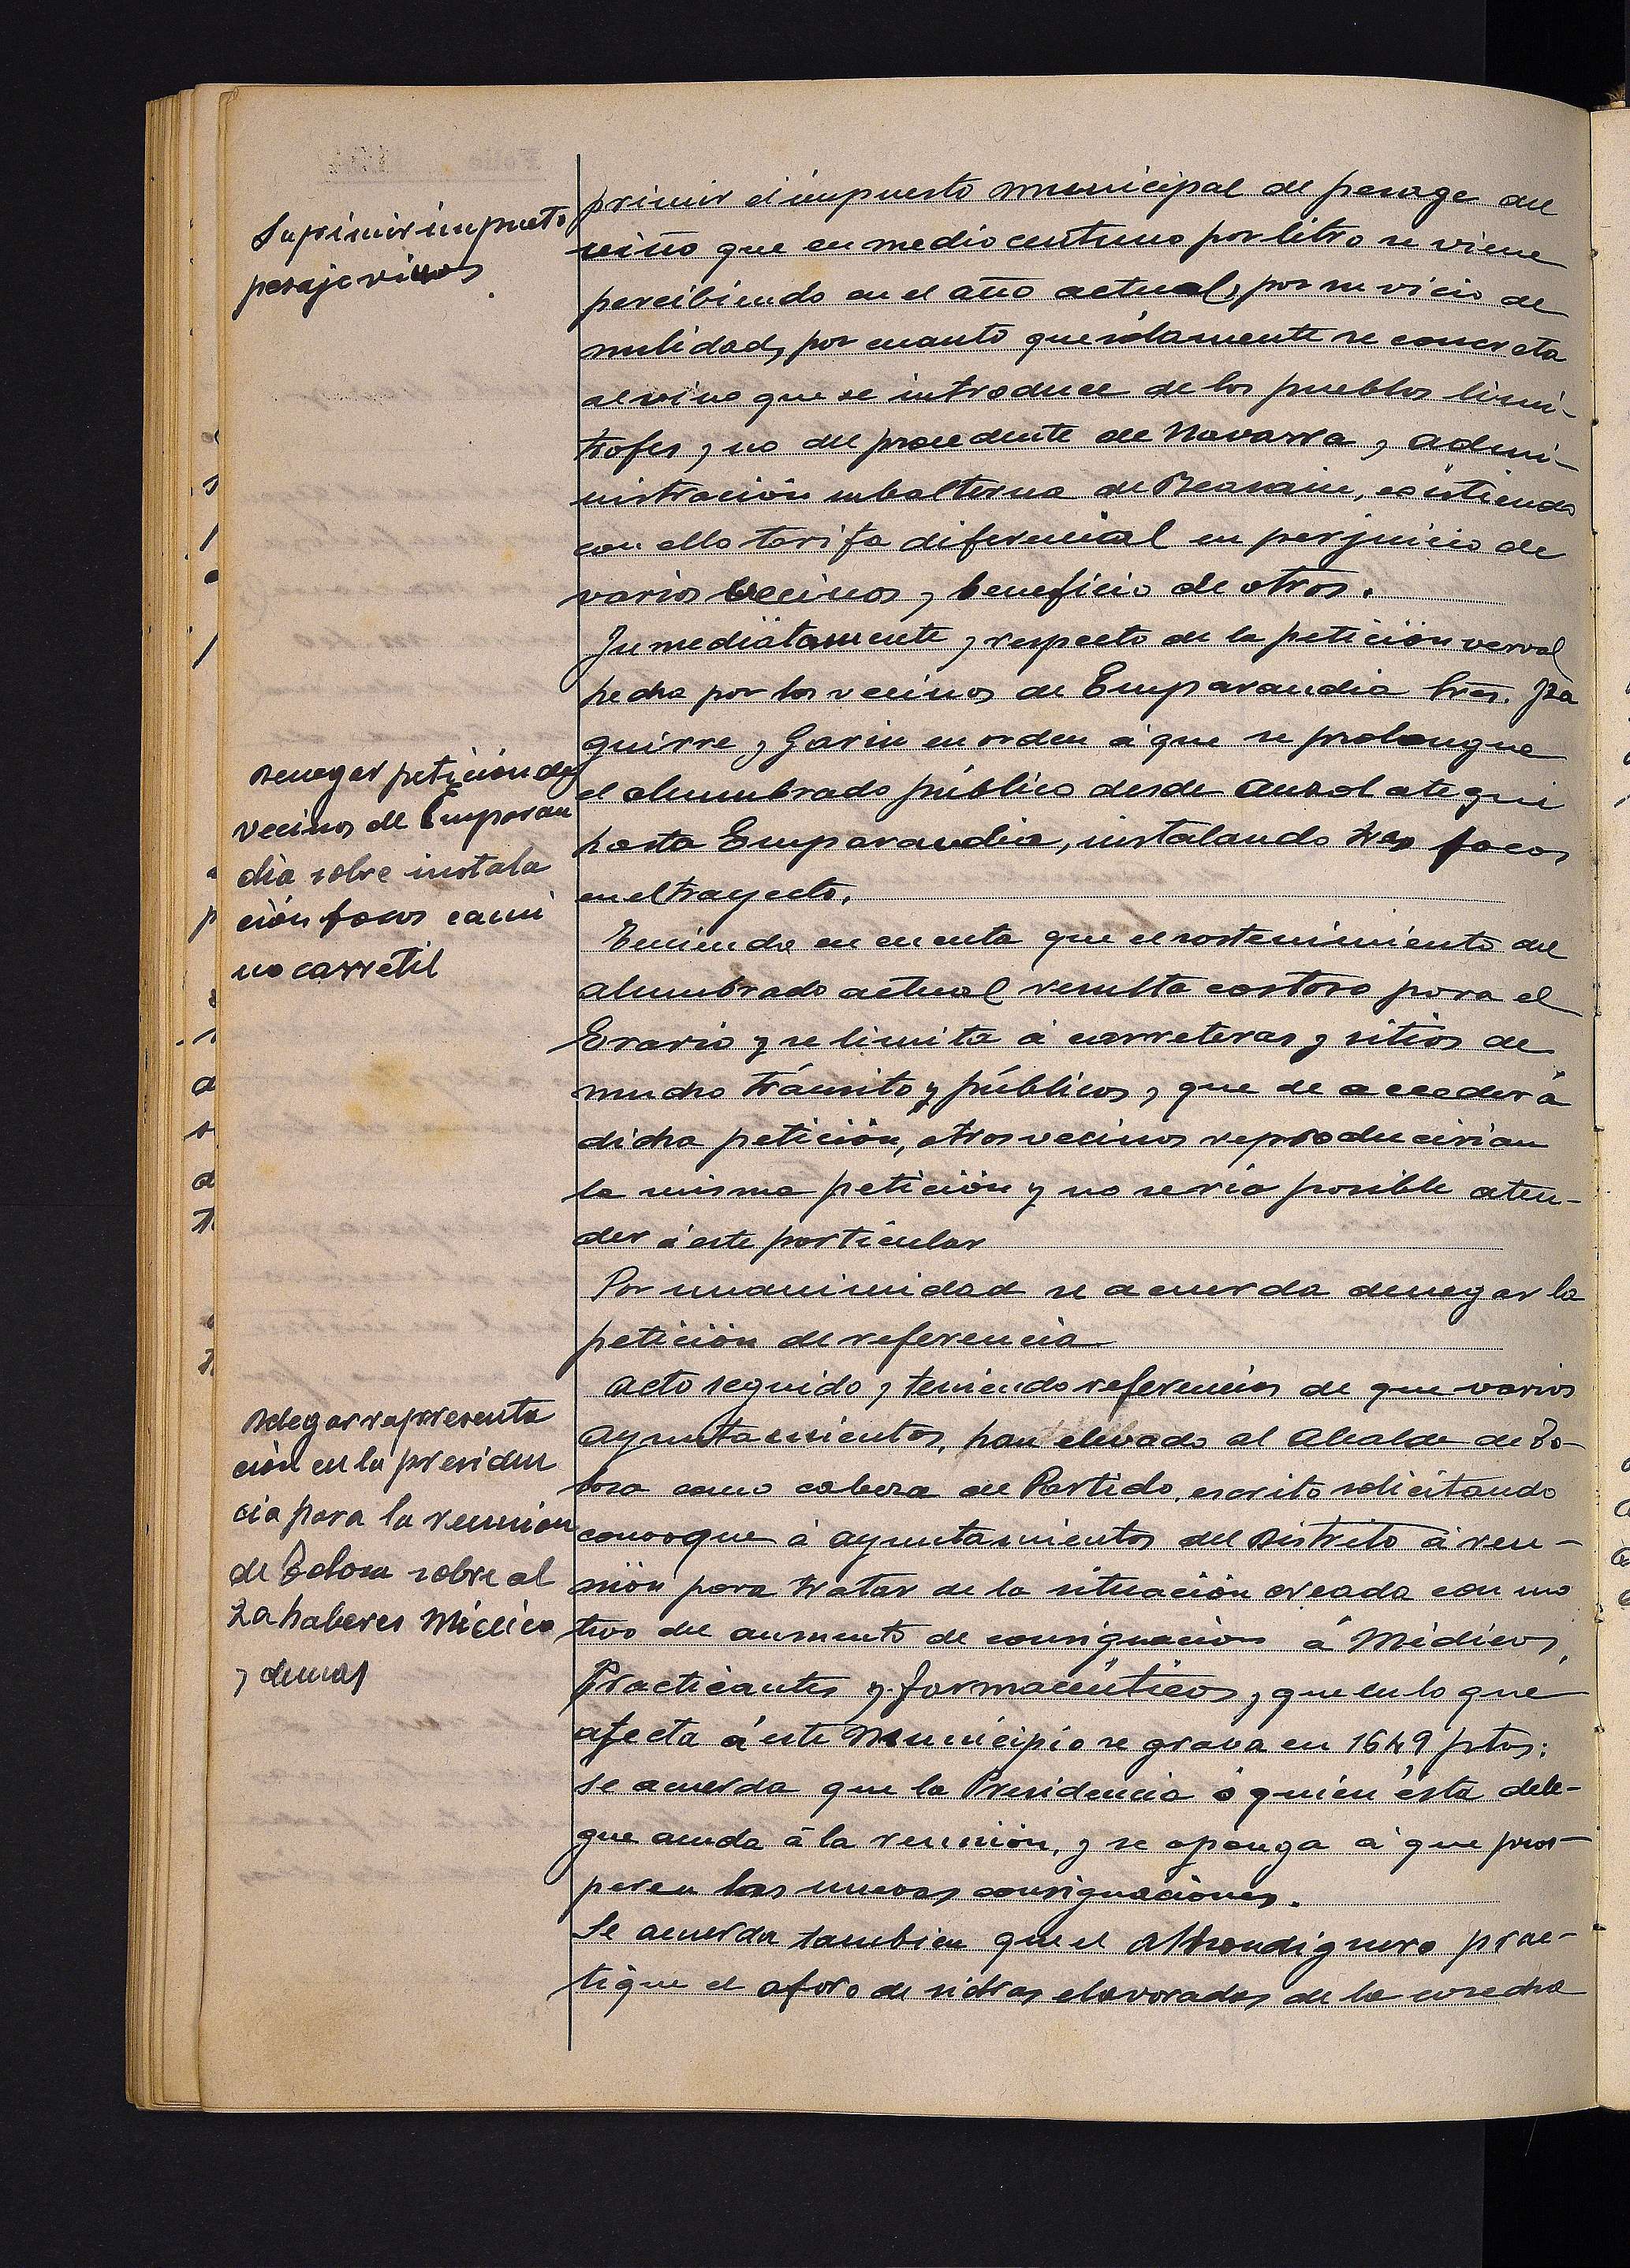 Suprimir impuesto
pesaje vinos
primir el impuesto municipal de pesage del
vino que en medio centimo por litro se viene
percibiendo en el año actual, por su vicio de
nulidad, por cuanto que sólamente se concreta
al vino que se introduce de los pueblos limi-
trofes, y no del procedente de Navarra, y admi-
nistración subalterna de Beasain, existiendo
con ello tarifa diferencial en perjuicio de
varios vecinos y beneficio de otros.
Inmediatamente, y respecto de la petición verval
hecha por los vecinos de Emparandia Sres. Iza
guirre y Garin en orden á que se prolongue
el alumbrado público desde Auzolategui
hasta Emparandia, instalando tres focos
en el trayecto.
Denegar petición de
vecinos de Emparan
dia sobre instala
ción focos cami
no carretil
Teniendo en cuenta que el sostenimiento del
alumbrado actual resulta costoso para el
Erario y se limita á carreteras y sitios de
mucho tránsito y públicos, y que de acceder á
dicha petición, otros vecinos reproducirian
la misma petición y no sería posible aten-
der á este particular
Por unanimidad se acuerda denegar la
petición de referencia
Delegar representa
ción en la presiden
cia para la reunion
de Tolosa sobre al
za haberes Médico
y demas
Acto seguido, y teniendo referencias de que varios
Ayuntamientos, han elevado al Alcalde de To-
losa como cabeza de Partido, escrito solicitando
convoque á ayuntamientos del Distrito á reu-
nión para tratar de la situación creada con mo
tivo del aumento de consignación á Médicos,
Practicantes y farmacéuticos, y que en lo que
afecta á este Municipio se grava en 1649 ptas;
se acuerda que la Presidencia ó quien ésta dele-
gue acuda á la reunión, y se oponga á que pros-
peren las nuevas consignaciones.
Se acuerda tambien que el Alhondiguero prac-
tique el aforo de sidras elavoradas de la cosecha